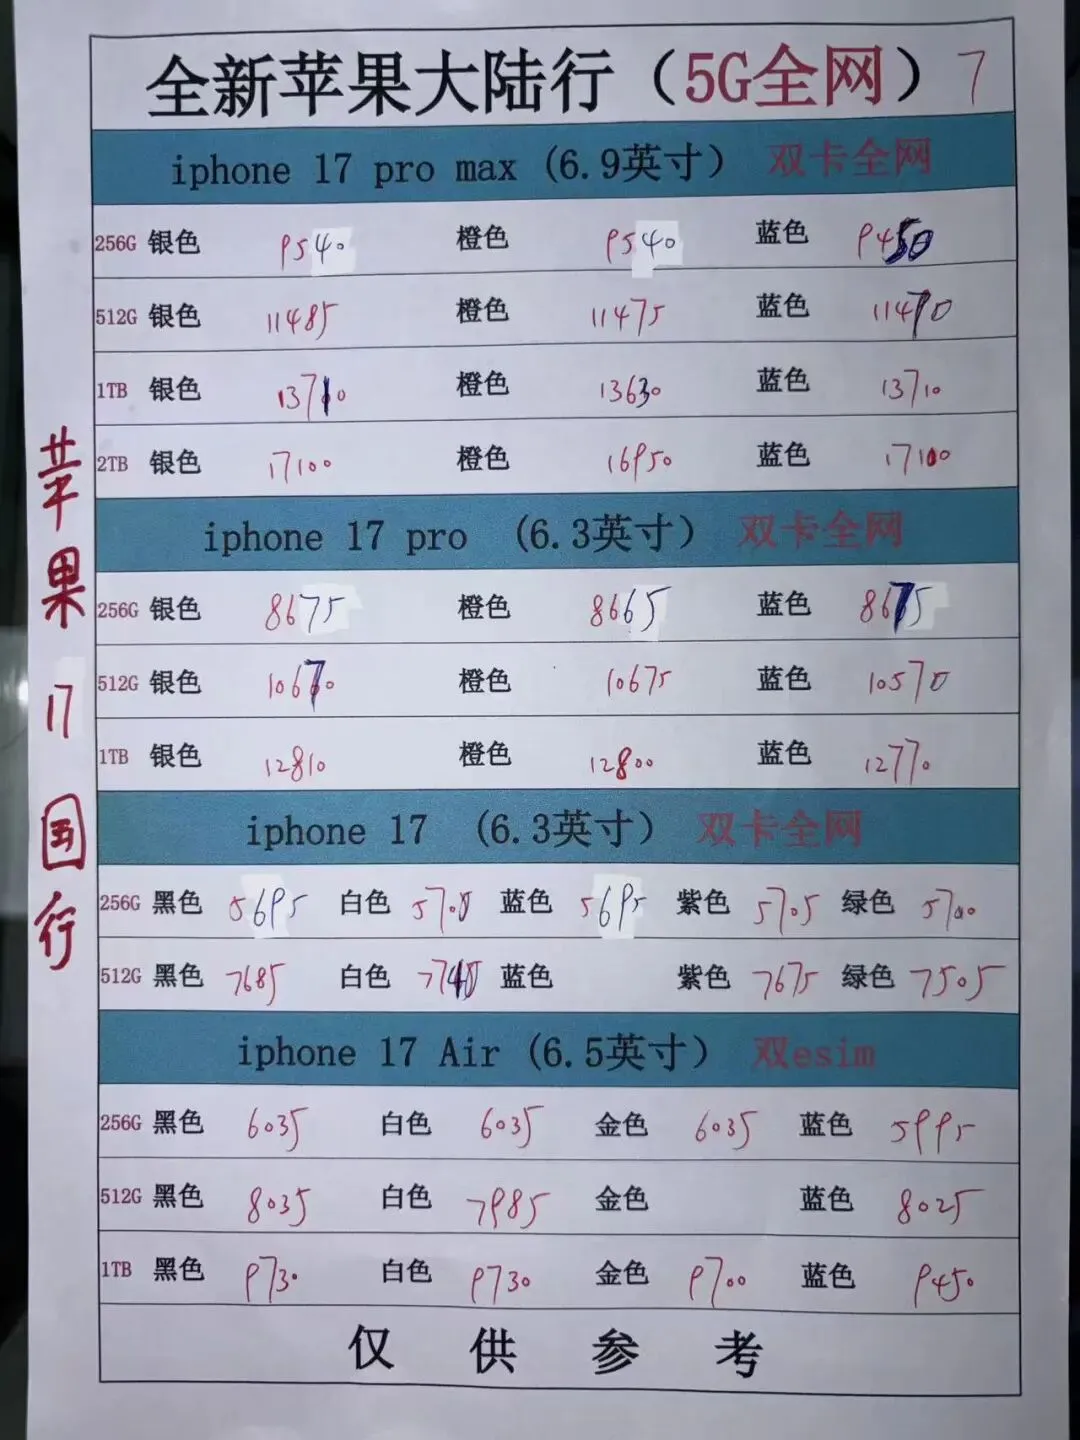 全新苹果大陆行（5G全网）7
iphone 17 pro max (6.9英寸） 双卡全网
256G 银色 9540 橙色 9540 蓝色 9450
512G 银色 11485 橙色 11475 蓝色 11470
1TB 银色 13710 橙色 13630 蓝色 13710
2TB 银色 17100 橙色 16950 蓝色 17100
iphone 17 pro (6.3英寸） 双卡全网
256G 银色 8675 橙色 8665 蓝色 8675
512G 银色 橙色 10675 蓝色 10570
1TB 银色 12810 橙色 12800 蓝色 12770
iphone 17 (6.3英寸） 双卡全网
256G 黑色 5695 白色 5700 蓝色 5695 紫色 5705 绿色 5700
512G 黑色 7685 白色 蓝色 紫色 7675 绿色 7505
iphone 17 Air (6.5英寸） 双esim
256G 黑色 6035 白色 6035 金色 6035 蓝色 5995
512G 黑色 8035 白色 7985 金色 蓝色 8025
1TB 黑色 9730 白色 9730 金色 9700 蓝色 9450
仅供参考
苹果17国行